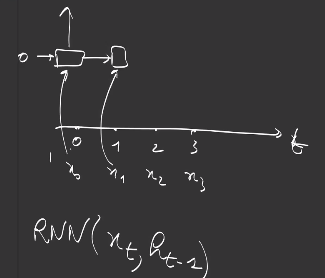 0
0 1 2 3 t
x₀ x₁ x₂ x₃
RNN(x_t, h_{t-1})